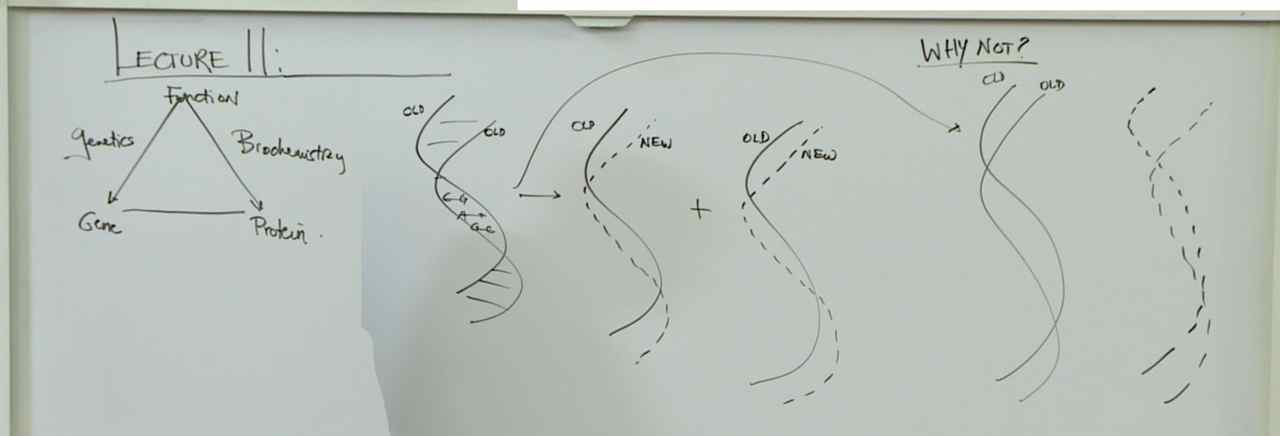 LECTURE 11:
Function
Genetics
Biochemistry
Gene
Protein.
OLD
OLD
C-G
A
G-C
OLD
NEW
+
OLD
NEW
WHY NOT?
OLD
OLD